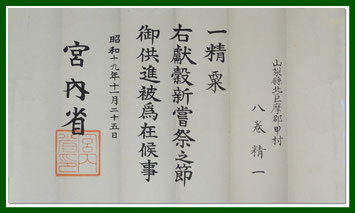 山梨縣北巨摩郡甲村
八巻精一
一精粟
右獻穀新嘗祭之節
御供進被爲在候事
昭和十九年十一月二十五日
宮内省